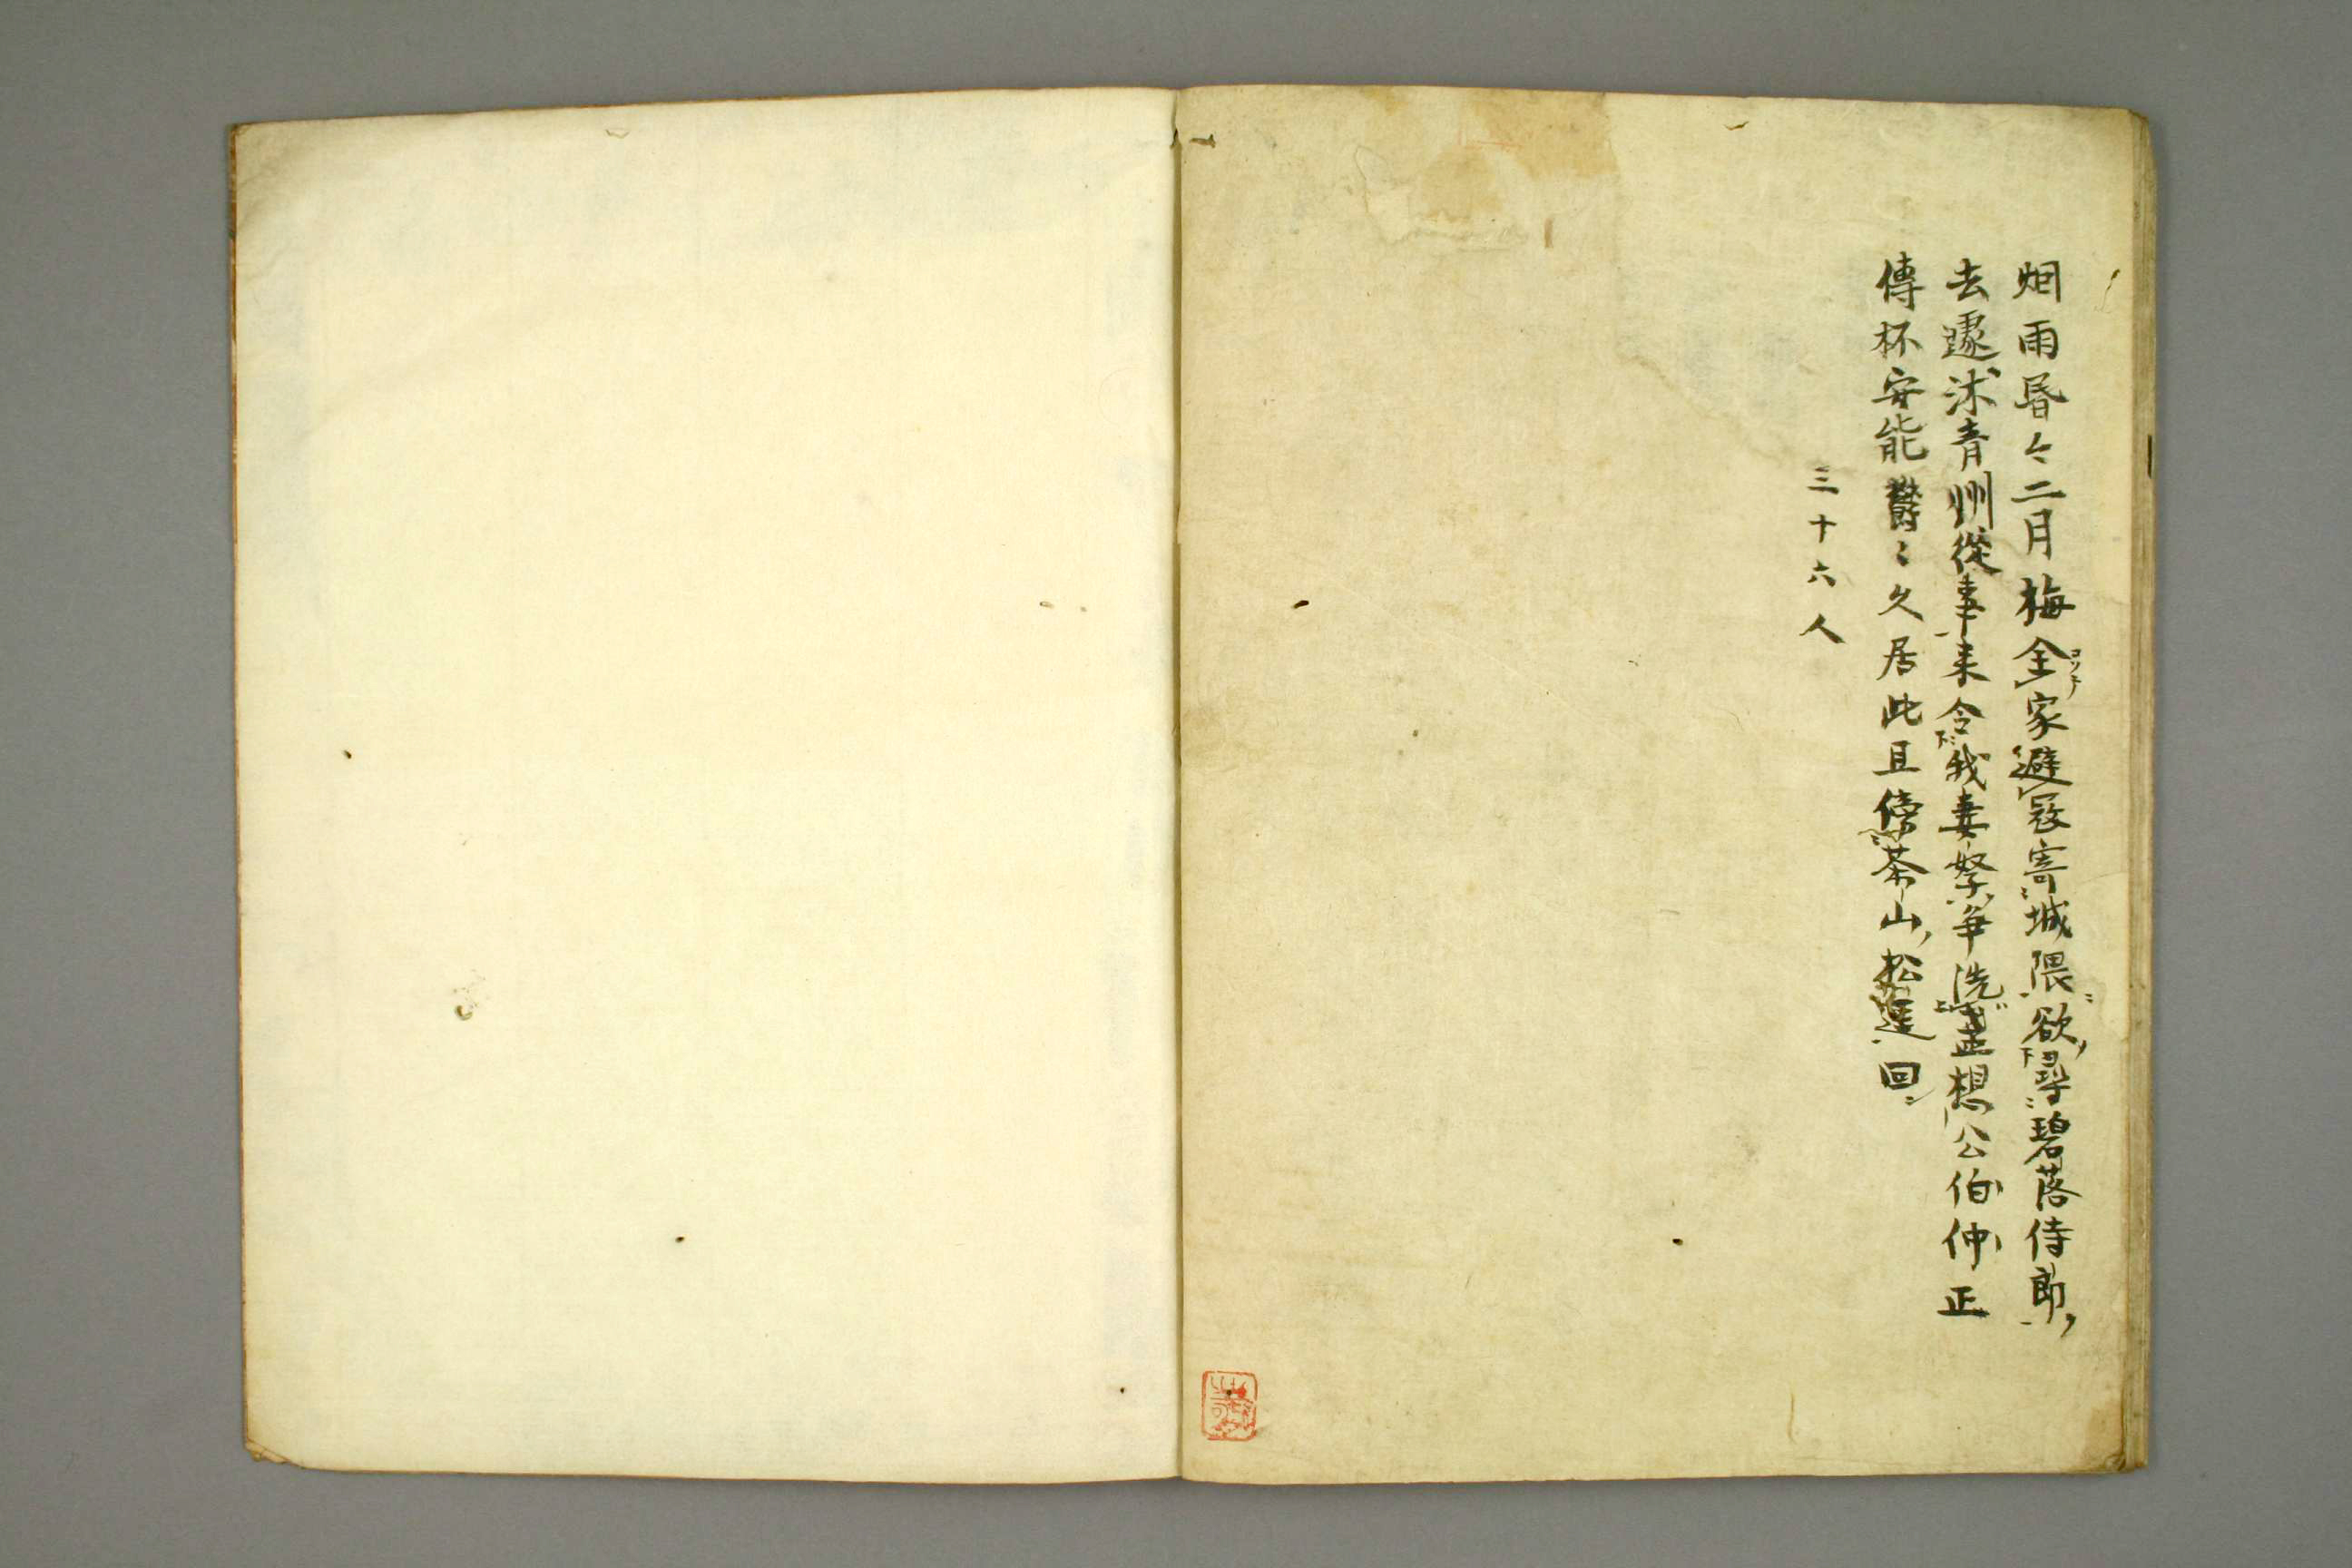 烟雨昏々二月梅全家避寇寄城隈欲尋碧落侍郎
去遽沭青州從事来令我妻孥争洗盞想公伯仲正
傳杯安能鬱〻久居此且傍茶山松逕回
三十六人
コソテ